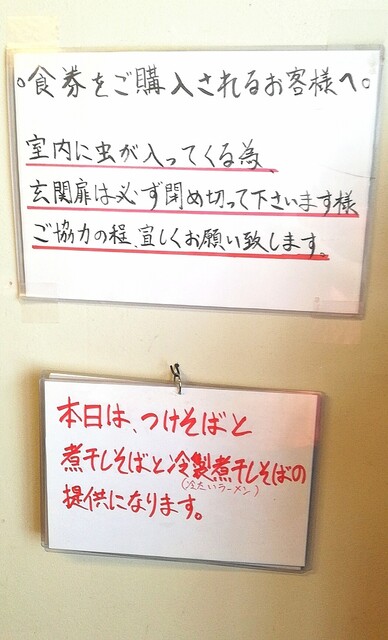 。食券をご購入されるお客様へ。
室内に虫が入ってくる為、
玄関扉は必ず閉め切って下さいます様
ご協力の程、宜しくお願い致します。
本日は、つけそばと
煮干しそばと冷製煮干しそばの
(冷たいラーメン)
提供になります。